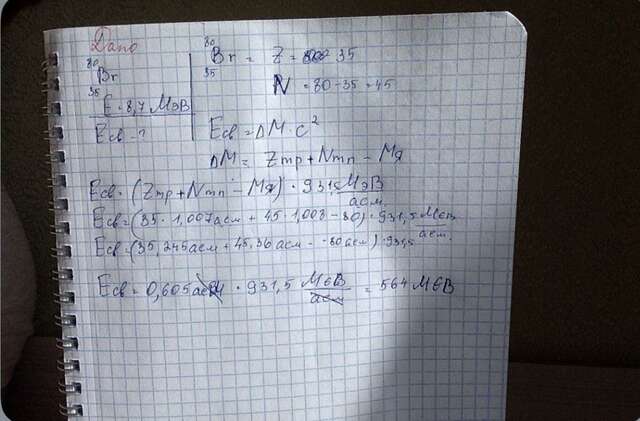 Дано
80
Br
35
E = 8,7 МэВ
Eсв - ?
80
Br = Z = 35
35
N = 80 - 35 = 45
Eсв = ΔM · c²
ΔM = Zmp + Nmn - Mя
Eсв = (Zmp + Nmn - Mя) · 931,5 МэВ/аем.
Eсв = (35 · 1,007 аем + 45 · 1,008 - 80) · 931,5 Мев/аем.
Eсв = (35,245 аем + 45,36 аем - 80 аем) · 931,5
Eсв = 0,605 аем · 931,5 МєВ/аем = 564 МєВ